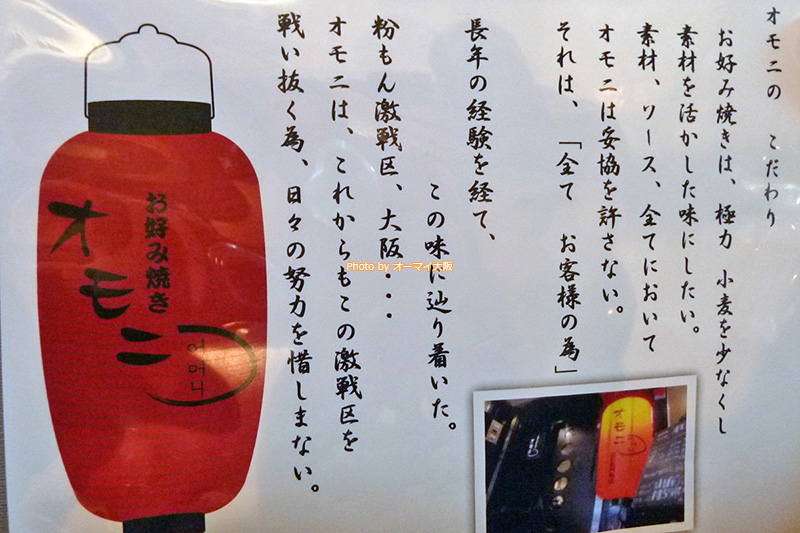 オモニの こだわり
お好み焼きは、極力 小麦を少なくし
素材を活かした味にしたい。
素材、ソース、全てにおいて
オモニは妥協を許さない。
それは、「全て お客様の為」
長年の経験を経て、
この味に辿り着いた。
粉もん激戦区、大阪・・・
オモニは、これからもこの激戦区を
戦い抜く為、日々の努力を惜しまない。
お好み焼き
オモニ
어머니
Photo by オーマイ大阪
オモニ